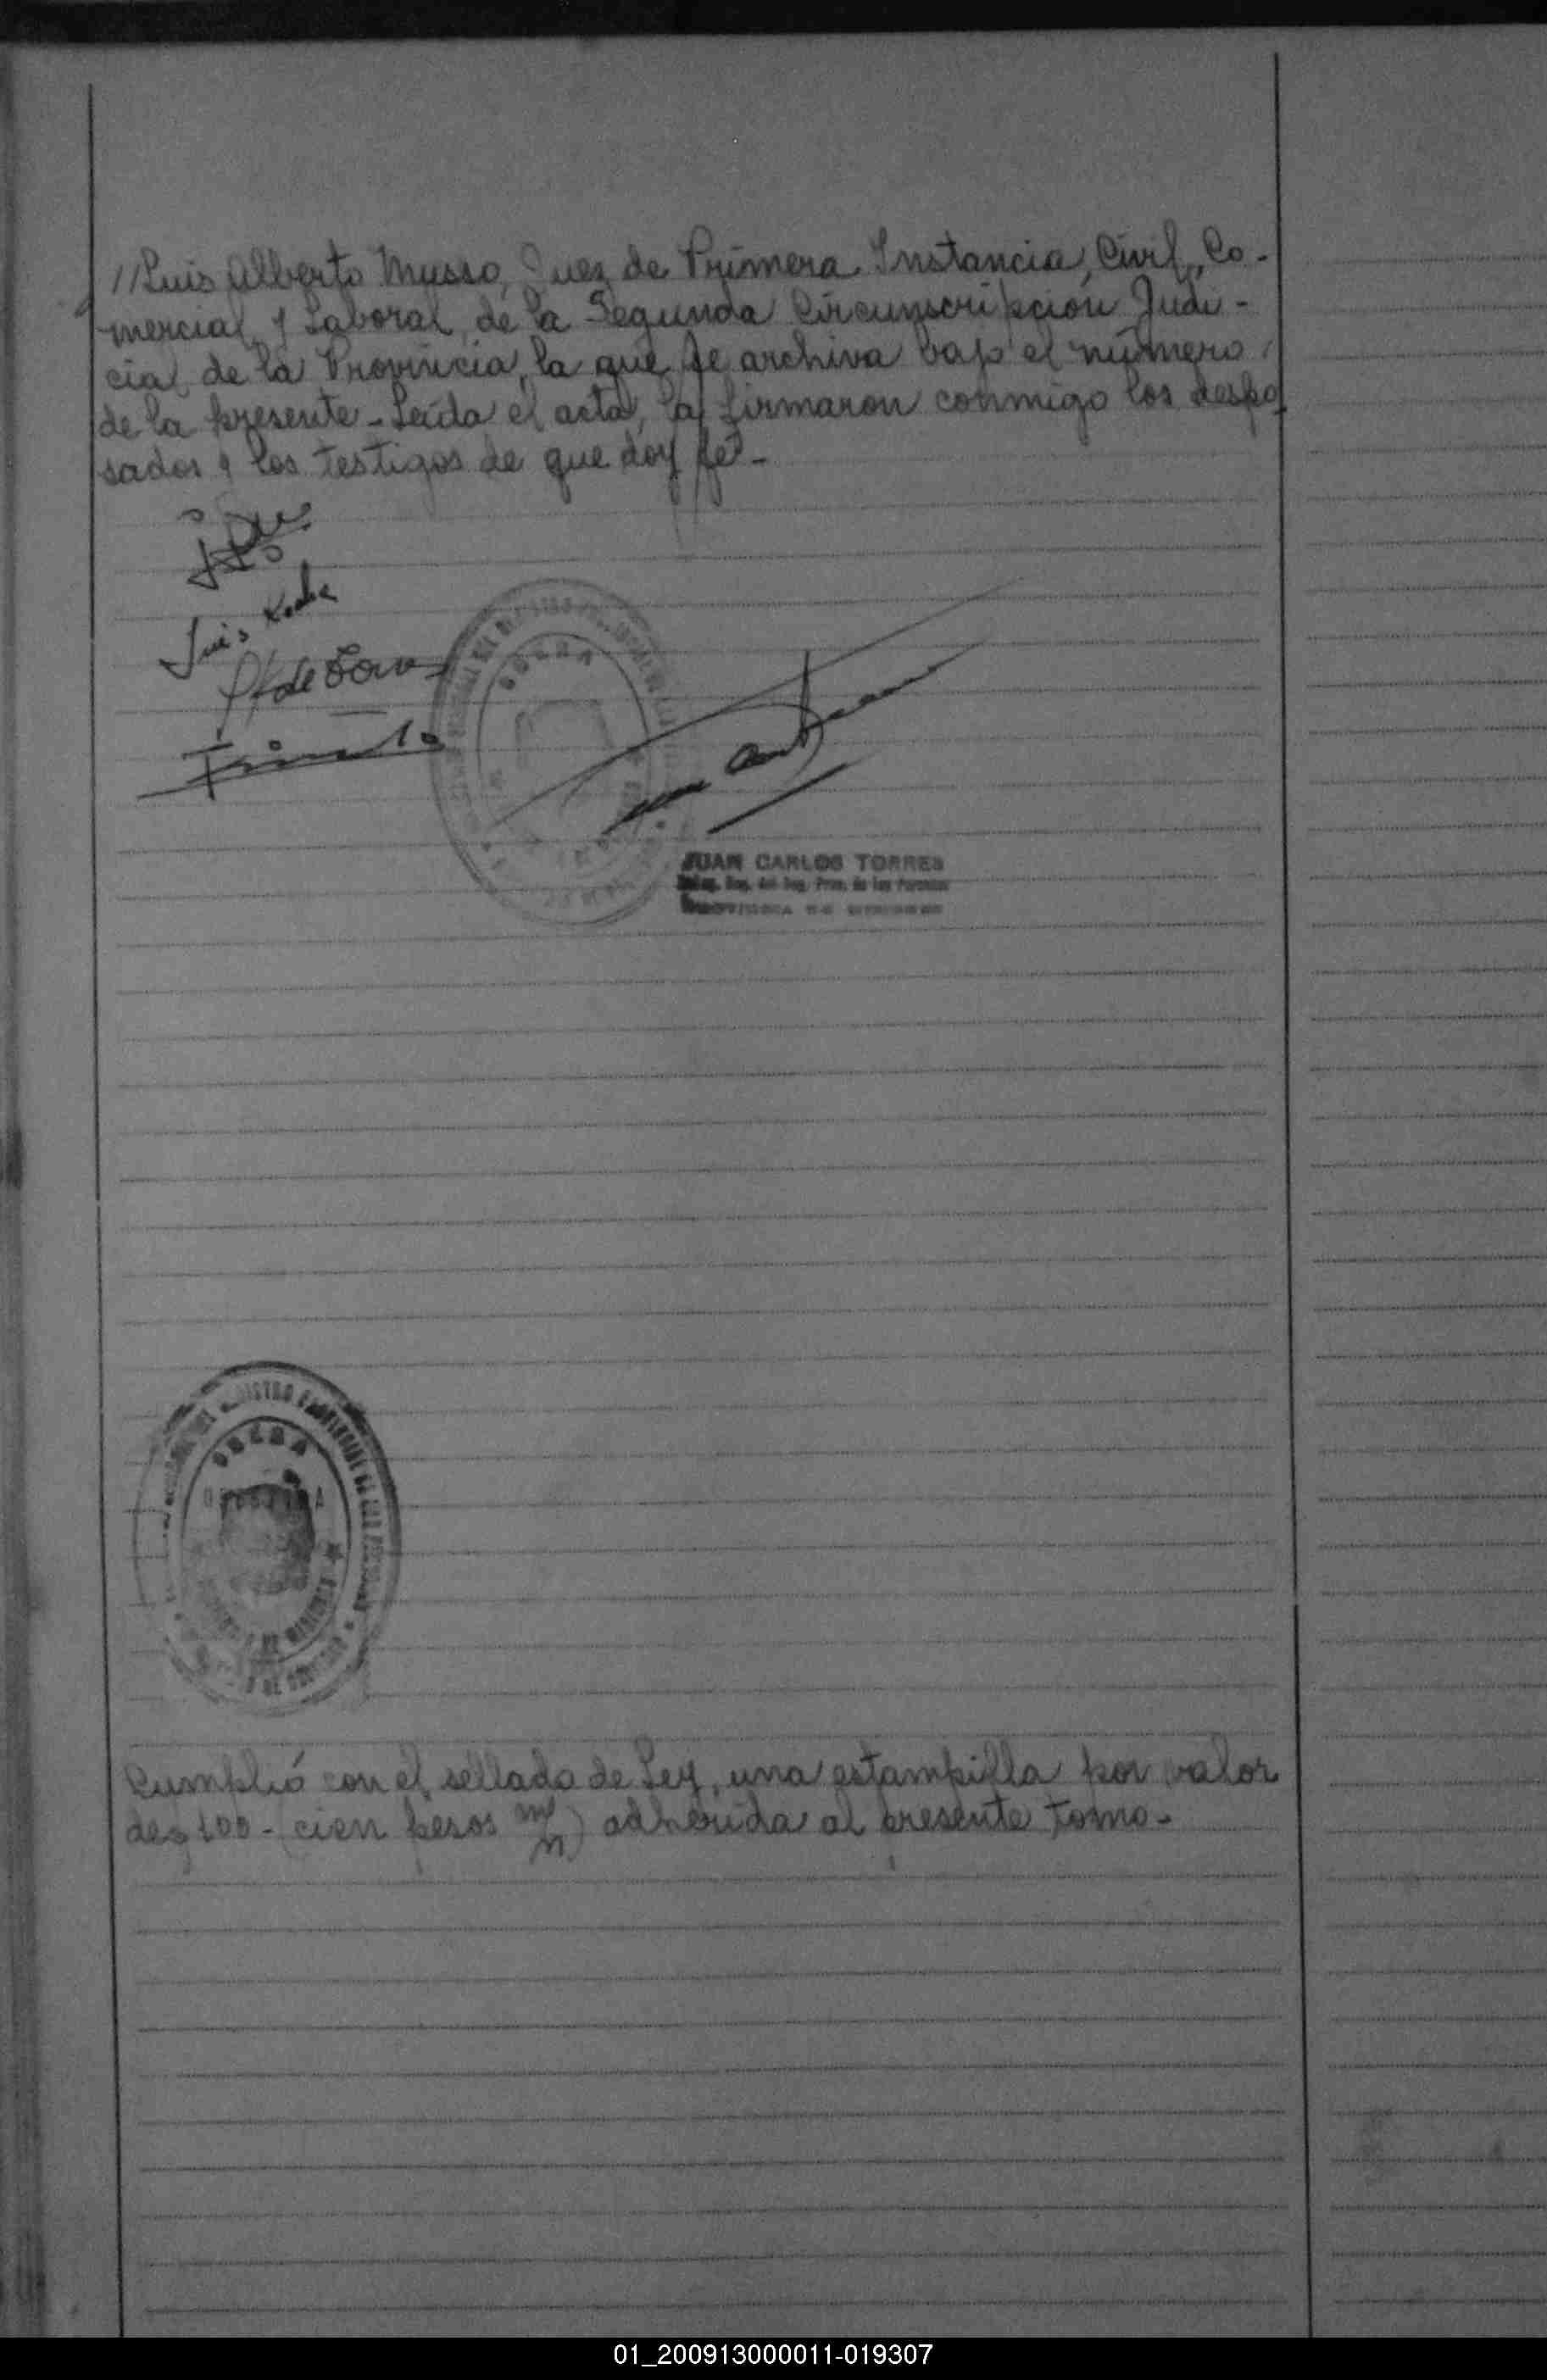 //Luis Alberto Musso, Juez de Primera Instancia, Civil, Co-
mercial y Laboral, de la Segunda Circunscripción Judi-
cial de la Provincia, la que se archiva bajo el número
de la presente - Leída el acta, la firmaron conmigo los despo
sados y los testigos de que doy fé -
Luis
OBERA
JUAN CARLOS TORRES
OBERA
Cumplió con el sellado de Ley, una estampilla por valor
de $ 100 - (cien pesos m/n) adherida al presente tomo -
01_200913000011-019307